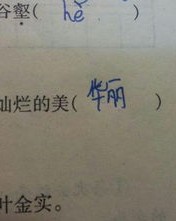 谷壑( hè )
灿烂的美( 华丽 )
叶金实。